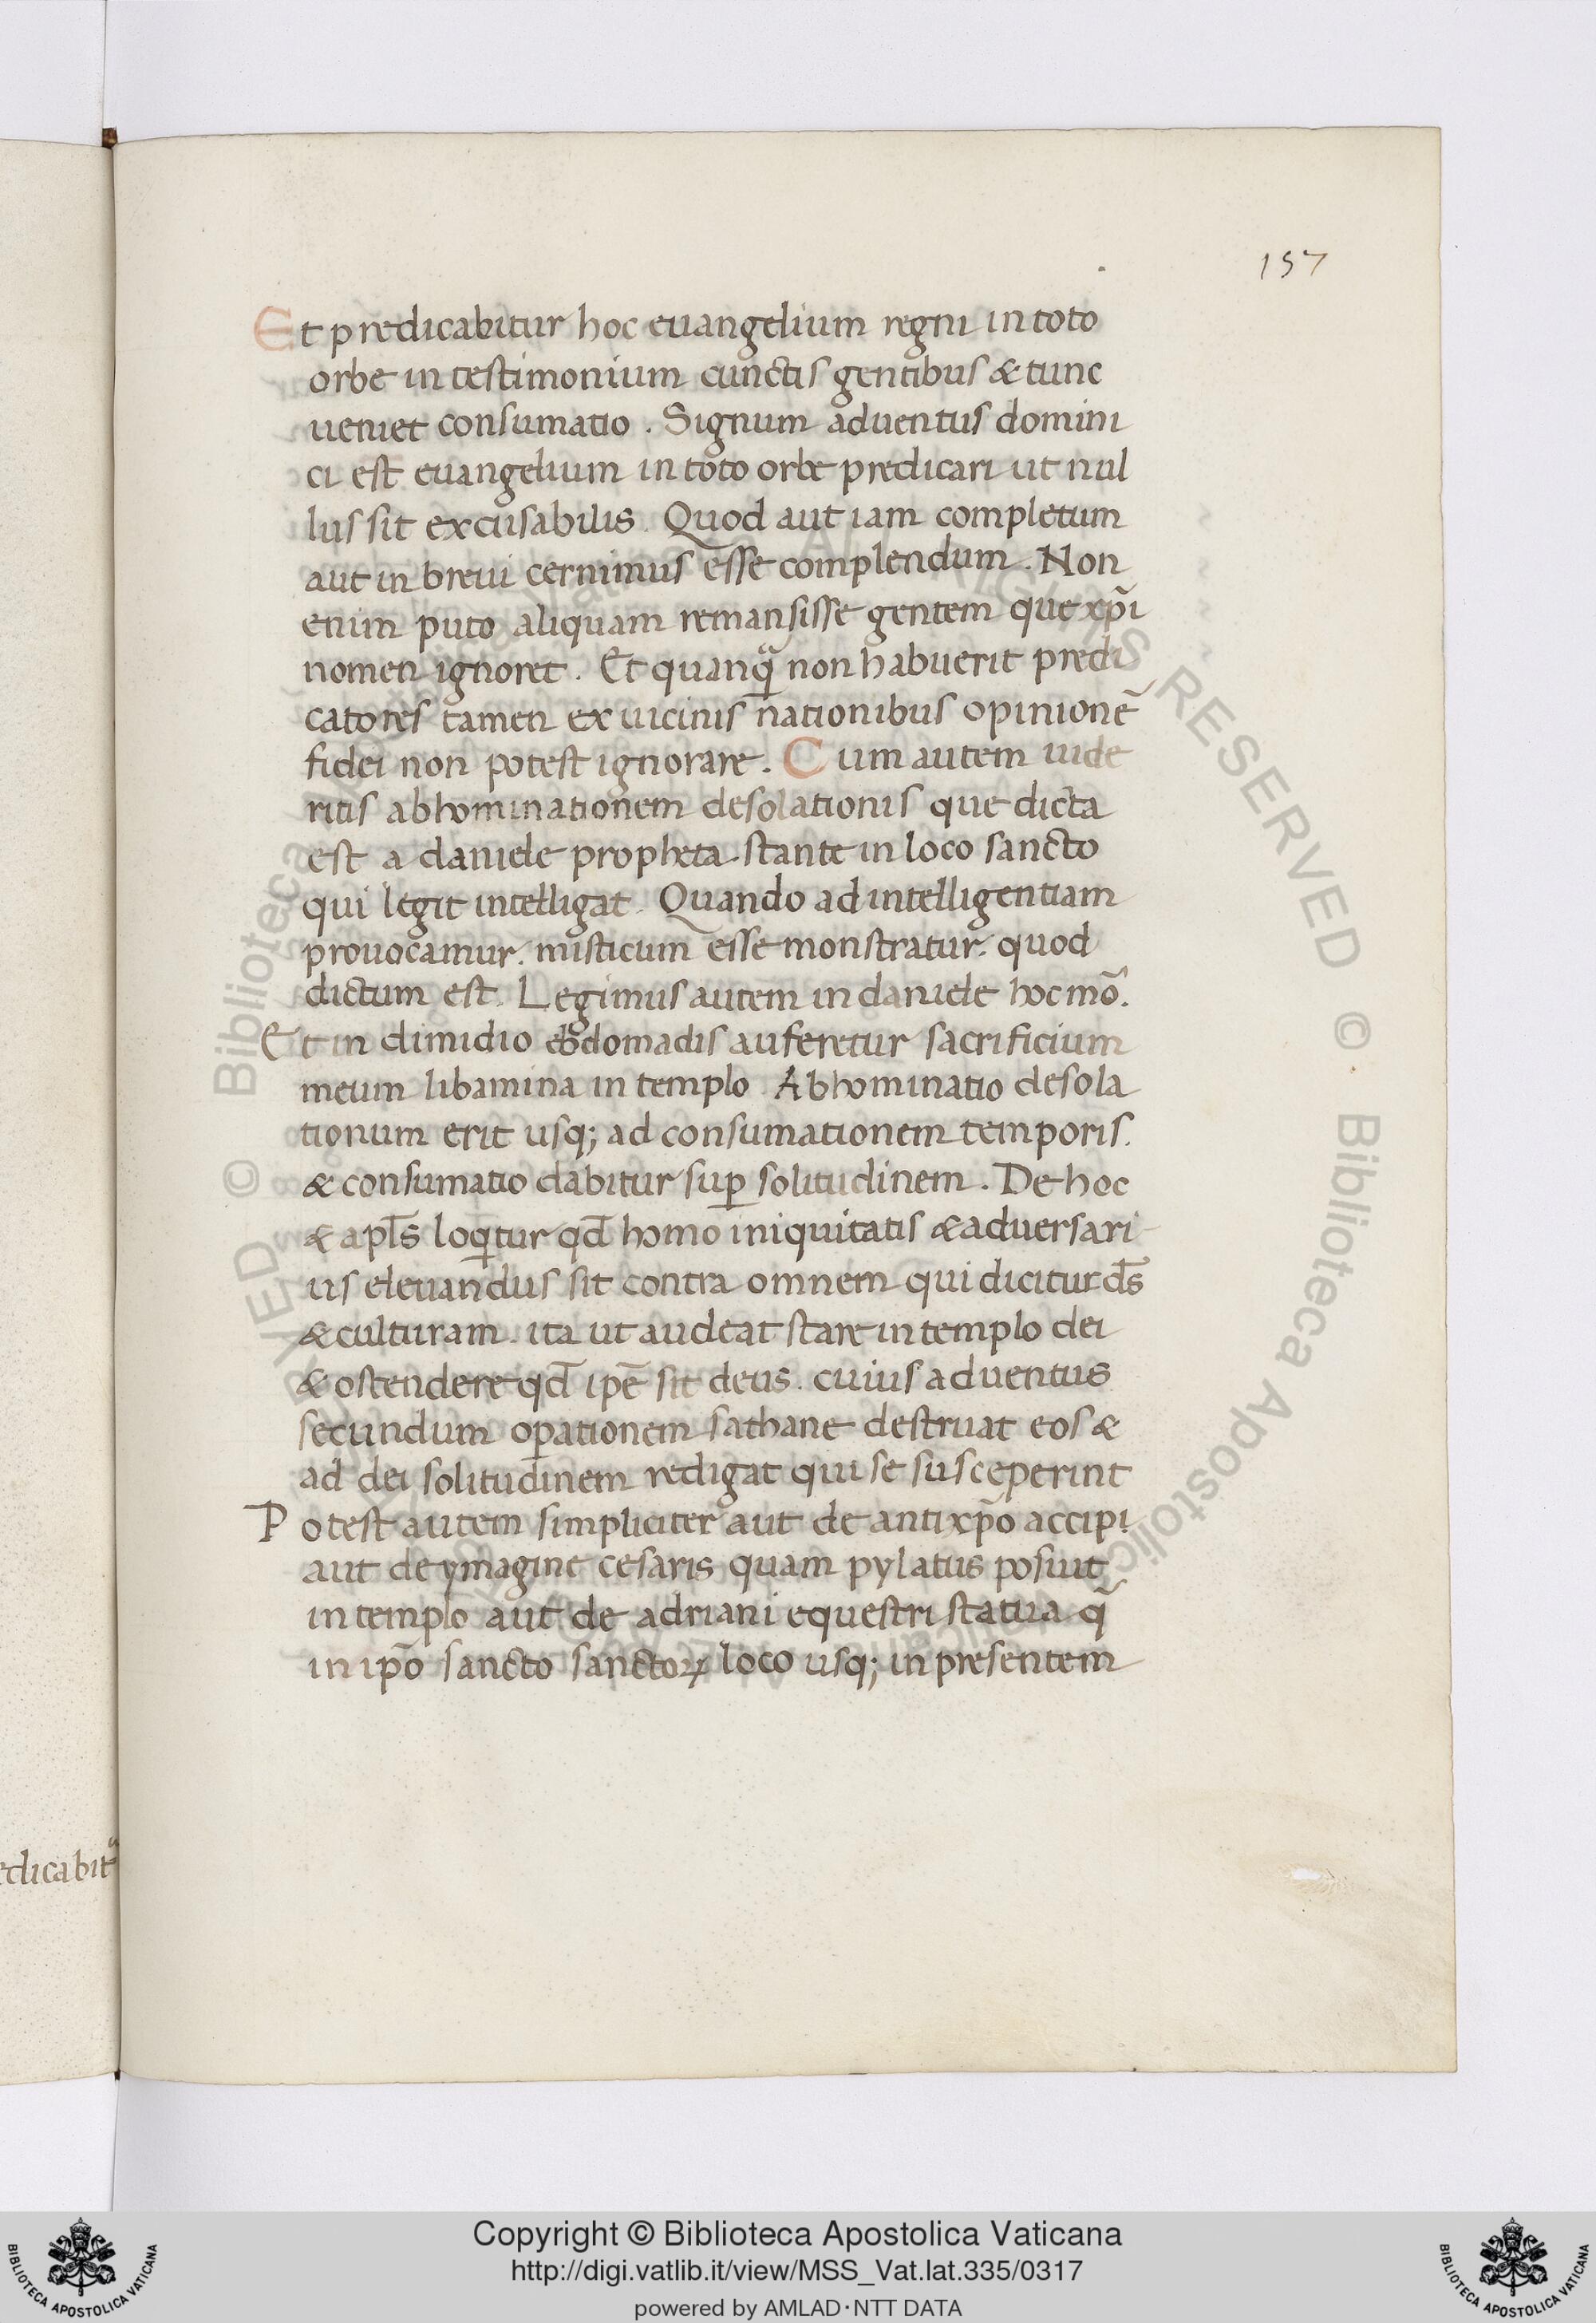 157
Et predicabitur hoc euangelium regni in toto
orbe in testimonium cunctis gentibus & tunc
ueniet consumatio. Signum aduentus domini
ci est euangelium in toto orbe predicari ut nul
lus sit excusabilis. Quod aut iam completum
aut in breui cernimus esse complendum. Non
enim puto aliquam remansisse gentem que xp̄i
nomen ignoret. Et quanq̃ non habuerit predi
catores tamen ex uicinis nationibus opinionē
fidei non potest ignorare. Cum autem uide
ritis abhominationem desolationis que dicta
est a daniele propheta stante in loco sancto
qui legit intelligat. Quando ad intelligentiam
prouocamur. misticum esse monstratur. quod
dictum est. Legimus autem in daniele hoc mō.
Et in dimidio ebdomadis auferetur sacrificium
meum libamina in templo. Abhominatio desola
tionum erit usq; ad consumationem temporis.
& consumatio dabitur sup̱ solitudinem. De hoc
& apl̄s loqitur qđ homo iniquitatis & aduersari
us eleuandus sit contra omnem qui dicitur ds̄
& culturam. ita ut audeat stare in templo dei
& ostendere qđ ipē sit deus. cuius aduentus
secundum op̱ationem sathane destruat eos &
ad dei solitudinem redigat qui se susceperint
Potest autem simpliciter aut de antixp̄o accipi
aut de ymagine cesaris quam pylatus posuit
in templo aut de adriani equestri statua q̃
in ip̄o sancto sanctoꝝ loco usq; in presentem
edicabit᷑
Copyright © Biblioteca Apostolica Vaticana
http://digi.vatlib.it/view/MSS_Vat.lat.335/0317
powered by AMLAD·NTT DATA
BIBLIOTECA APOSTOLICA VATICANA
BIBLIOTECA APOSTOLICA VATICANA